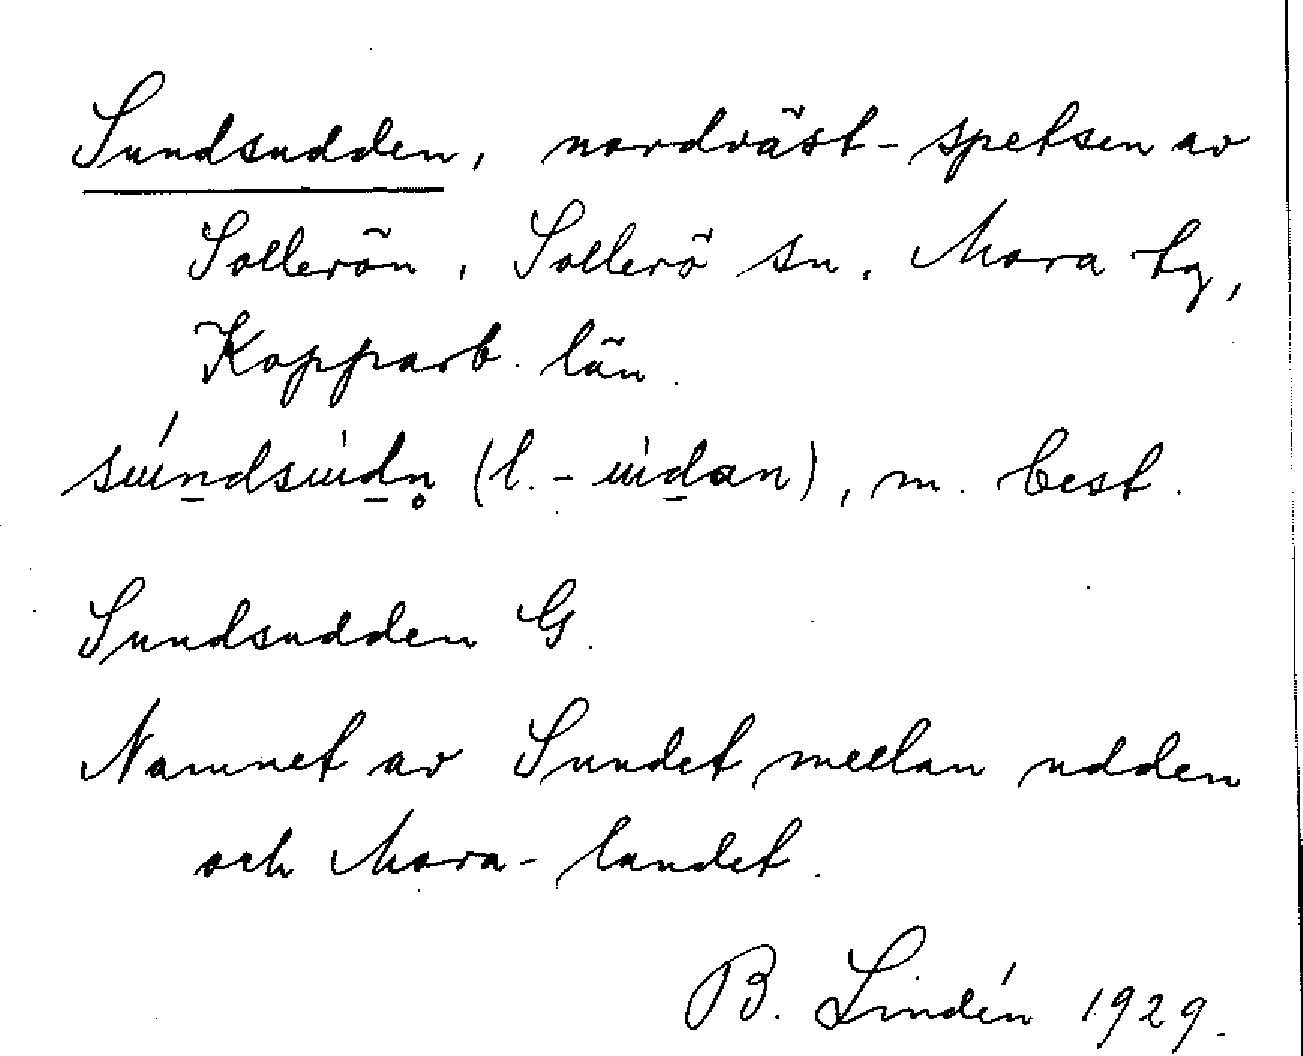 Sundsudden, nordväst-spetsen av
Sollerön, Sollerö sn, Mora tg,
Kopparb. län.
(l. -), m. best.
Sundsudden G.
Namnet av Sundet mellan udden
och Mora-landet.
B. Lindén 1929.